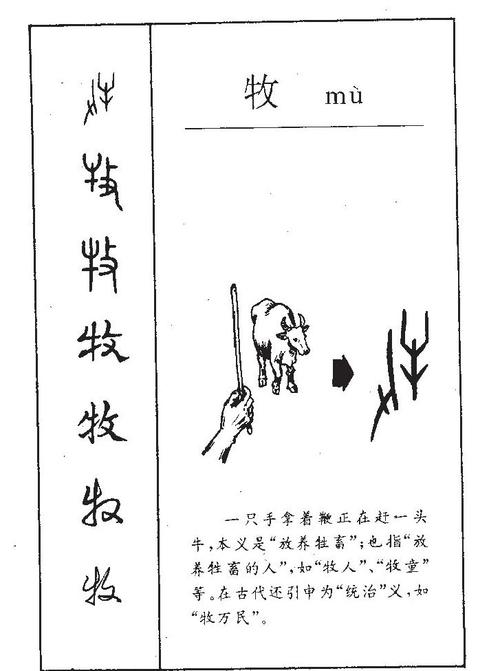 牧 mù
一只手拿着鞭正在赶一头
牛,本义是“放养牲畜”;也指“放
养牲畜的人”,如“牧人”、“牧童”
等。在古代还引申为“统治”义,如
“牧万民”。
牧
牧
牧
牧
牧
牧
牧